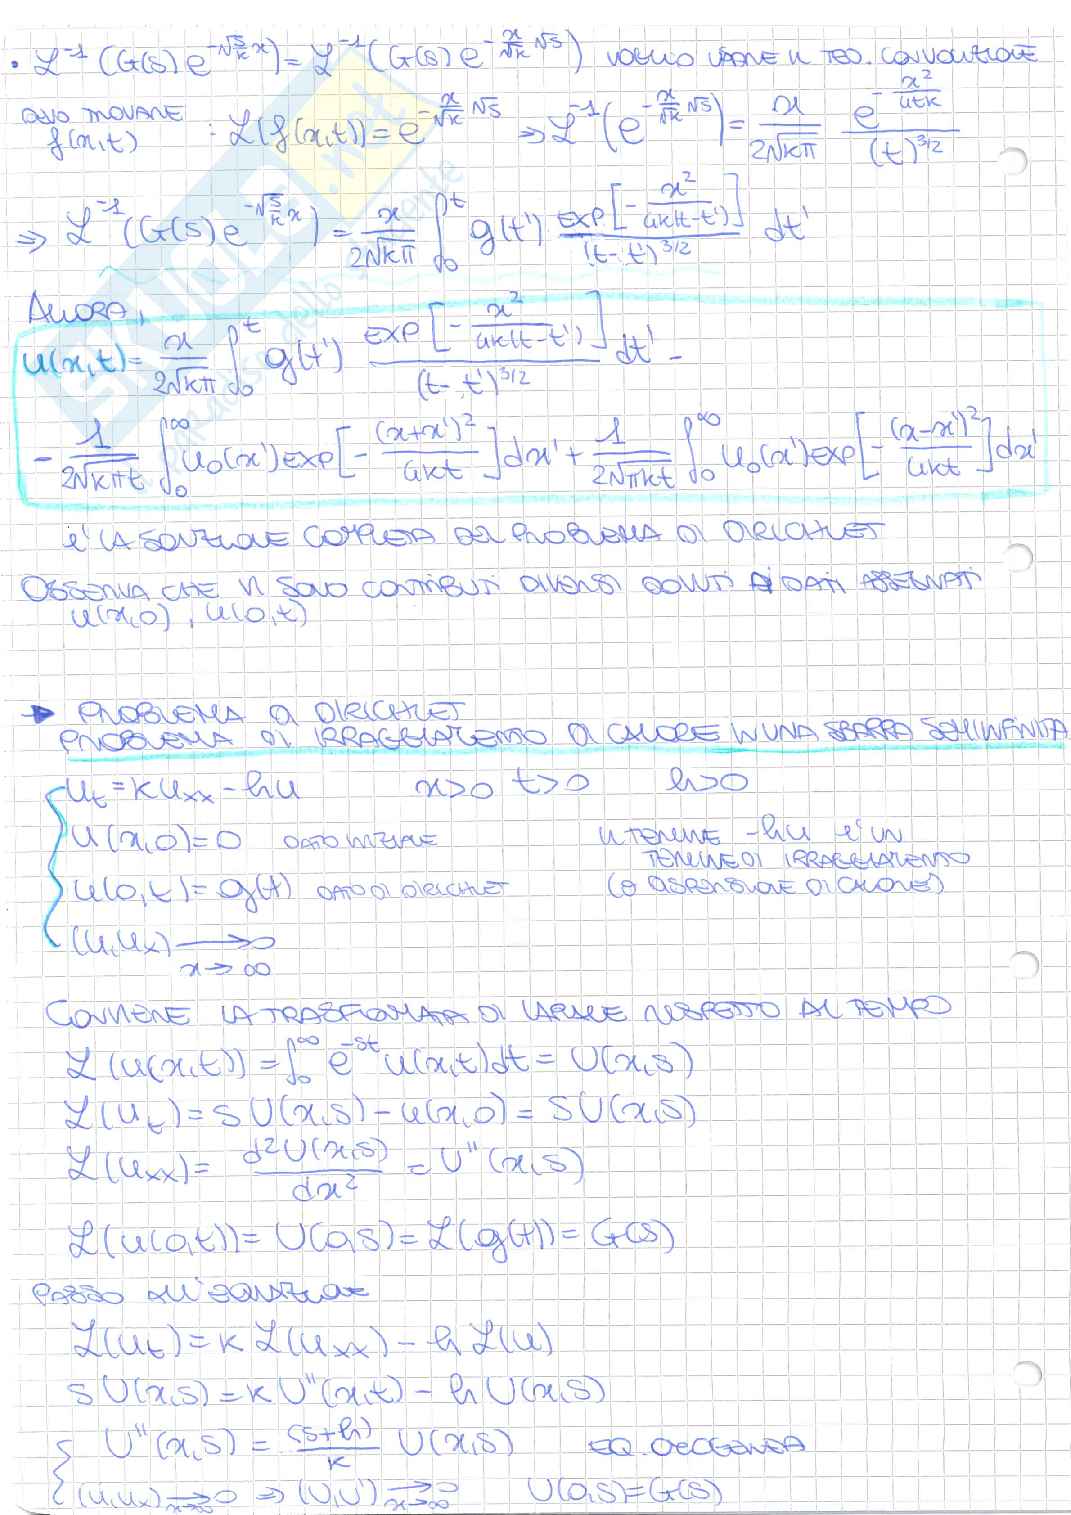 • ℒ⁻¹(G(s) e^{-√(s/k) x}) = ℒ⁻¹(G(s) e^{-x/√k √s}) VOGLIO USARE IL TEO. CONVOLUZIONE
DEVO TROVARE f(x,t) : ℒ(f(x,t)) = e^{-x/√k √s} ⇒ ℒ⁻¹(e^{-x/√k √s}) = x/(2√kπ) e^{-x²/4tk}/(t)^{3/2}
⇒ ℒ⁻¹(G(s) e^{-√(s/k) x}) = x/(2√kπ) ∫₀^t g(t') EXP[-x²/(4k(t-t'))]/(t-t')^{3/2} dt'
ALLORA,
u(x,t) = x/(2√kπ) ∫₀^t g(t') EXP[-x²/(4k(t-t'))]/(t-t')^{3/2} dt' -
- 1/(2√kπt) ∫₀^∞ u₀(x') EXP[-(x+x')²/4kt] dx' + 1/(2√πkt) ∫₀^∞ u₀(x') EXP[-(x-x')²/4kt] dx'
È LA SOLUZIONE COMPLETA DEL PROBLEMA DI DIRICHLET
OSSERVA CHE VI SONO CONTRIBUTI DIVERSI DOVUTI AI DATI ASSEGNATI
u(x,0), u(0,t)
→ PROBLEMA DI DIRICHLET
PROBLEMA DI IRRAGGIAMENTO DI CALORE IN UNA SBARRA SEMINFINITA
u_t = k u_xx - hu x>0 t>0 h>0
u(x,0) = 0 DATO INIZIALE IL TERMINE -hu È UN
TERMINE DI IRRAGGIAMENTO
u(0,t) = g(t) DATO DI DIRICHLET (O DISPERSIONE DI CALORE)
(u,u_x) → 0
x→∞
CONVIENE LA TRASFORMATA DI LAPLACE RISPETTO AL TEMPO
ℒ(u(x,t)) = ∫₀^∞ e^{-st} u(x,t) dt = U(x,s)
ℒ(u_t) = sU(x,s) - u(x,0) = sU(x,s)
ℒ(u_xx) = d²U(x,s)/dx² = U''(x,s)
ℒ(u(0,t)) = U(0,s) = ℒ(g(t)) = G(s)
PASSO ALL'EQUAZIONE
ℒ(u_t) = k ℒ(u_xx) - h ℒ(u)
sU(x,s) = k U''(x,t) - h U(x,s)
U''(x,s) = (s+h)/k U(x,s) EQ. OMOGENEA
(u,u_x) →_{x→∞} 0 ⇒ (U,U') →_{x→∞} 0 U(0,s) = G(s)